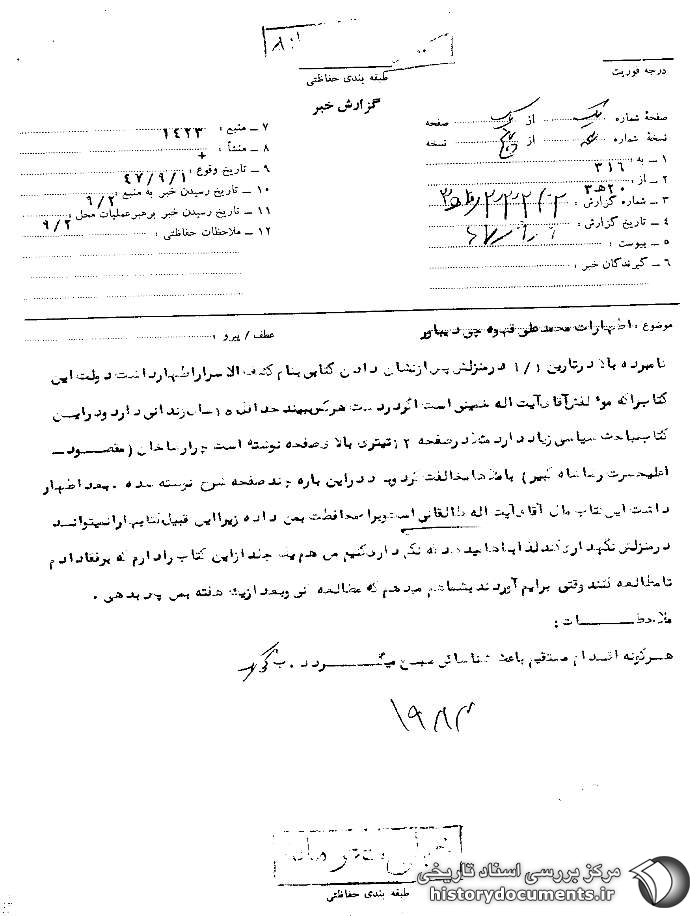 درجه فوریت
طبقه بندی حفاظتی
گزارش خبر
صفحهٔ شماره یک از یک صفحه
نسخهٔ شماره از نسخه
۱ ـ به : ۳۱۶
۲ ـ از : ۲۰ هـ ۳
۳ ـ شماره گزارش :
۴ ـ تاریخ گزارش :
۵ ـ پیوست :
۶ ـ گیرندگان خبر :
۷ ـ منبع : ۱۴۲۳
۸ ـ منشأ : +
۹ ـ تاریخ وقوع : ۴۷/۹/۱
۱۰ ـ تاریخ رسیدن خبر به منبع : ۹/۲
۱۱ ـ تاریخ رسیدن خبر برهبر عملیات محل : ۹/۲
۱۲ ـ ملاحظات حفاظتی :
موضوع : اظهارات محمدعلی قهوه چی دیباور
عطف / پیرو :
نامبرده بالا درتاریخ ۱/۹ درمنزلش پس ازنشان دادن کتابی بنام کشف الاسراراظهارداشت دولت این
کتاب راکه مولفش آقای آیت اله خمینی است اگردردست هرکس ببیند حداقل ۱۵ سال زندانی دارد ودراین
کتاب مباحث سیاسی زیاد دارد مثلا درصفحه تیتری بالای صفحه نوشته است چرارضاخان (مقصود ـ
اعلیحضرت رضاشاه کبیر) با ملاها مخالفت کرد و دراین باره چند صفحه شرح نوشته شده . بعد اظهار
داشت این کتاب مال آقای آیت اله طالقانی است وبرای محافظت بمن داده زیرا این قبیل کتابهارا نمیتوانند
درمنزلش نگهداری کند لذا بماها میدهد که نگهداری کنیم من هم یک جلد ازاین کتاب رادارم که برفقا دادم
تا مطالعه کنند وقتی برایم آوردند بشما هم میدهم که مطالعه کنی وبعد ازیک هفته بمن پس بدهی .
ملاحظـــات :
هرگونه اقدام مستقیم باعث شناسائی منبع میگـــردد .
۱۹۸۳
طبقه بندی حفاظتی
مرکز بررسی اسناد تاریخی
historydocuments.ir